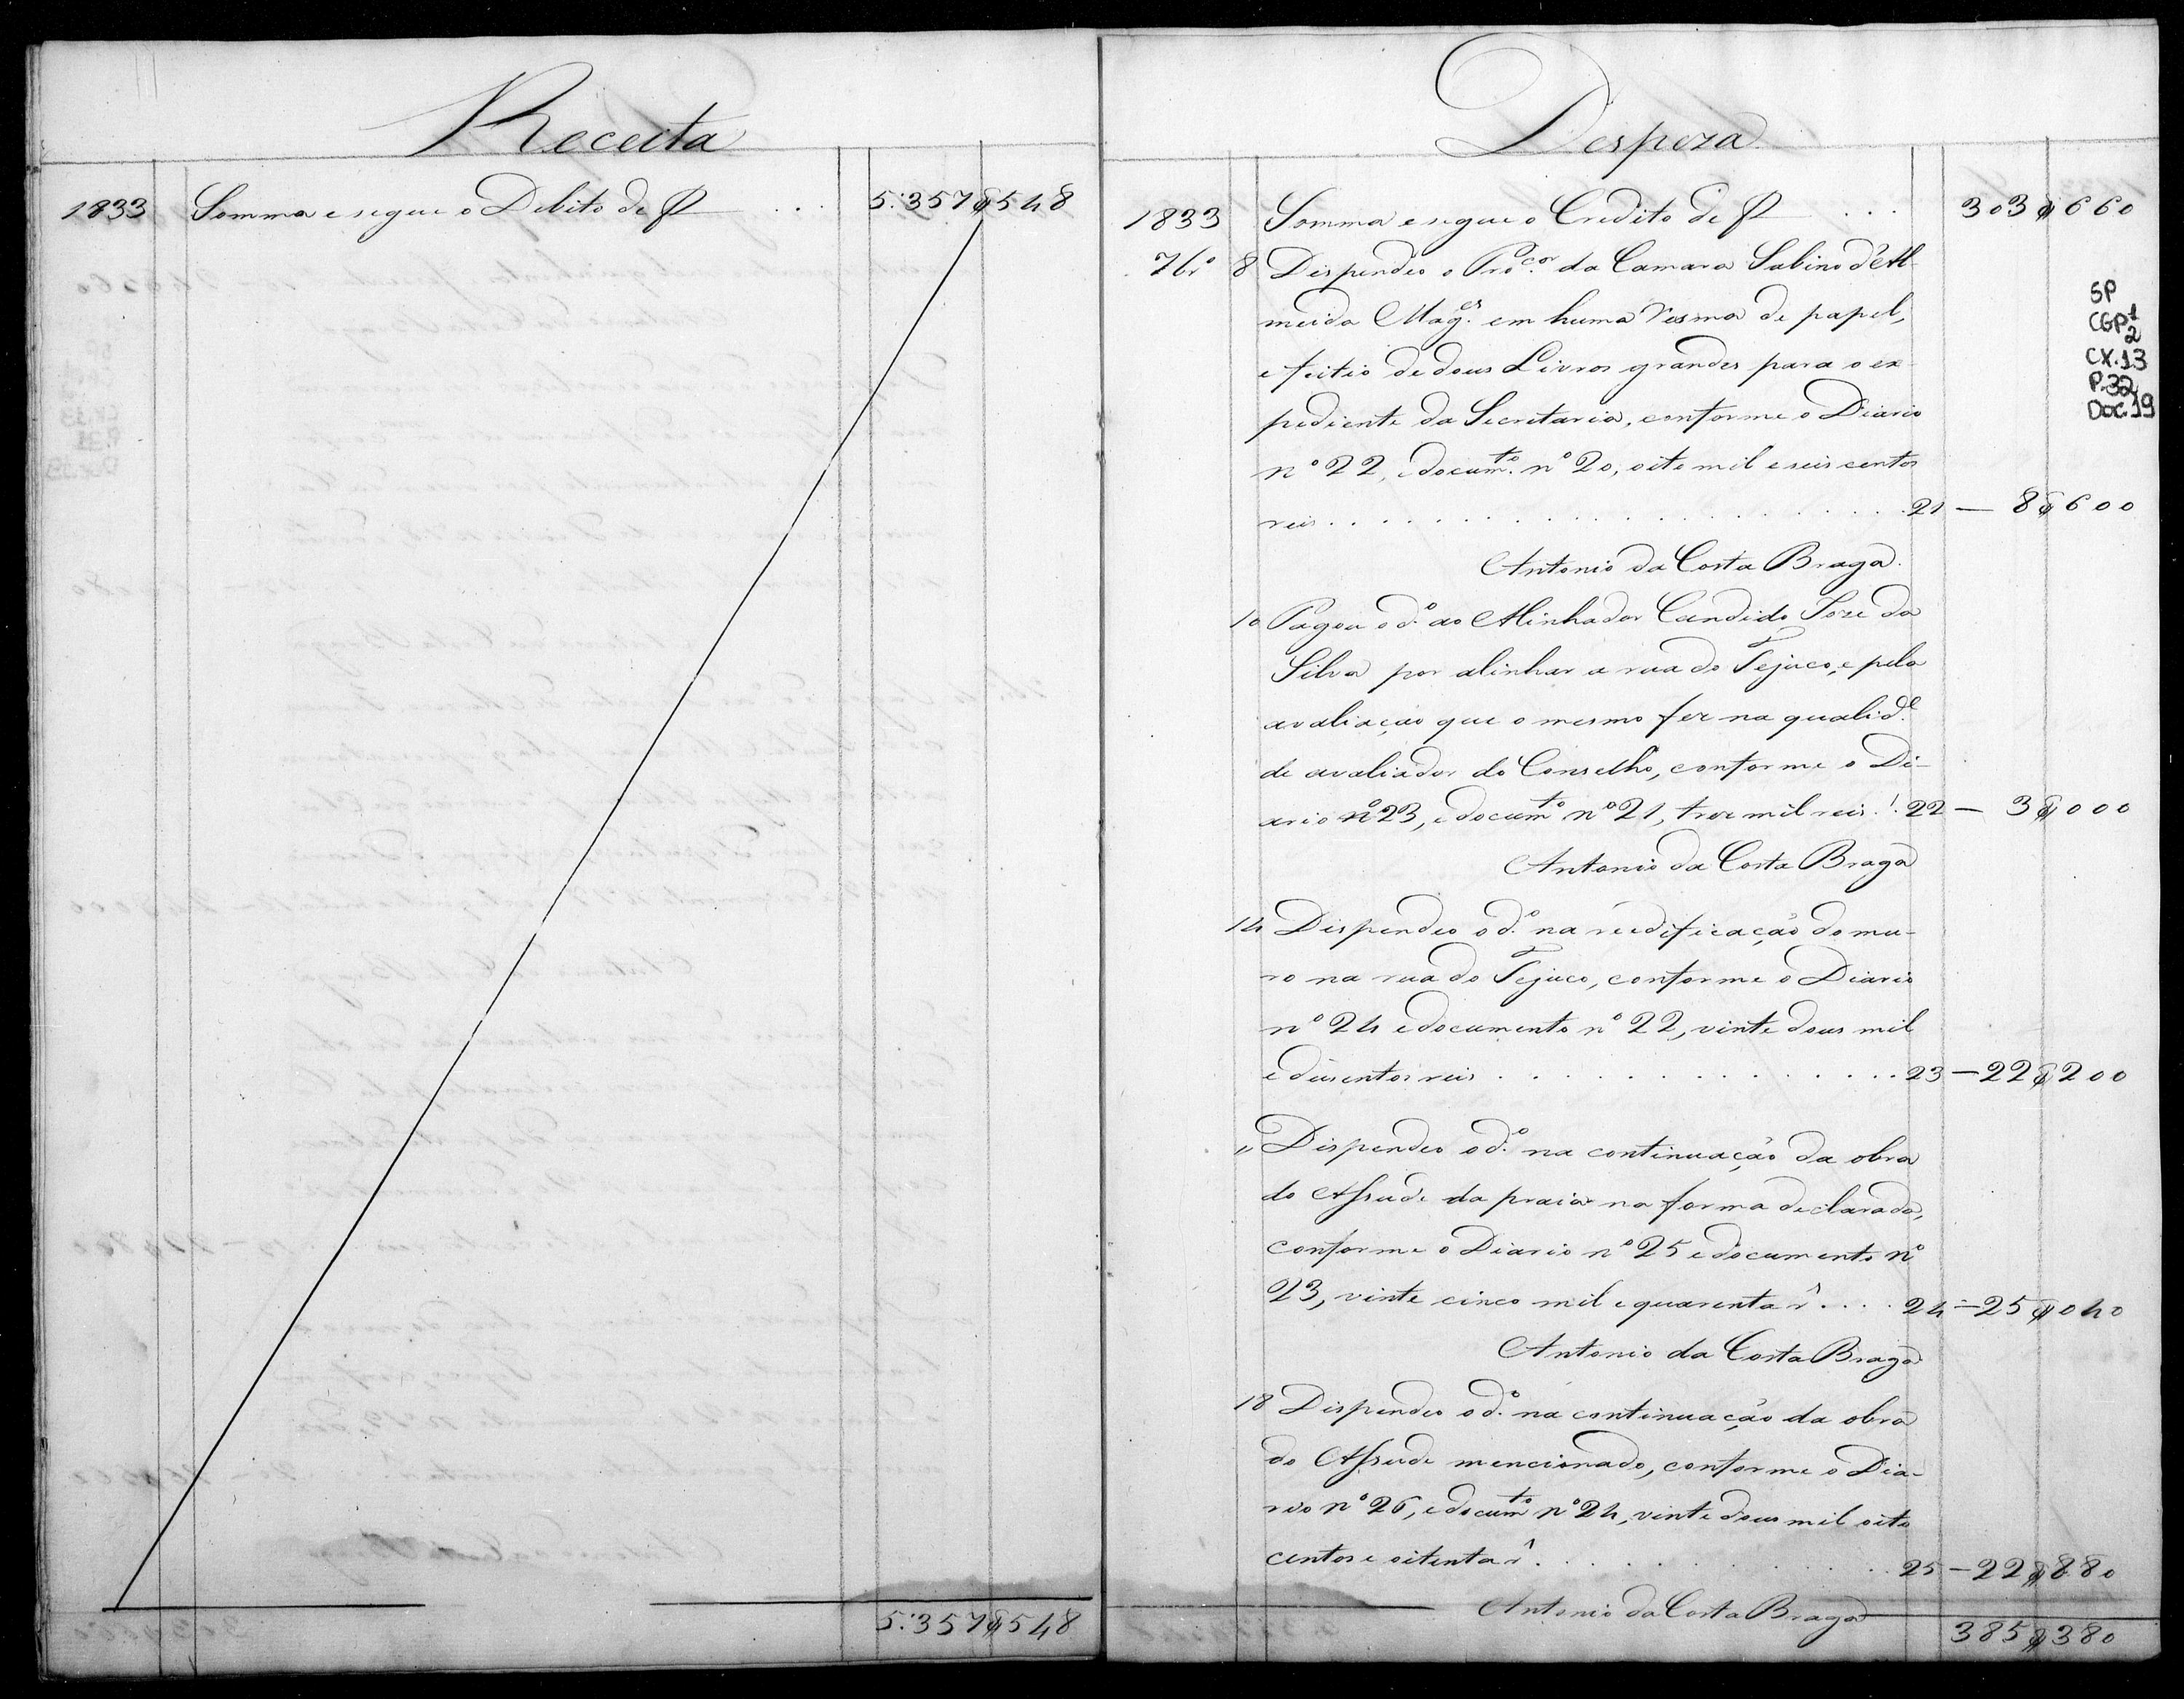 Receita
1833 Somma e segue o Debito de ₽ . . . 5:357$548
5:357$548
Despeza
1833 Somma e segue o Credito de ₽ . . . 303$660
7br.o 8 Dispendeo o Pro.cor da Camara Sabino d'Al-
meida Mag.es em huma resma de papel,
e feitio de dous Livros grandes para o ex-
pediente da Secretaria, conforme o Diario
nº 22, e docum.to nº 20, oito mil e seis centos
reis . . . . . . . . . . 21 — 8$600
Antonio da Costa Braga.
10 Pagou o d.o ao Alinhador Candido Joze da
Silva por alinhar a rua do Tejuco, e pela
avaliação que o mesmo fez na qualid.e
de avaliador do Conselho, conforme o Di-
ario nº 23, e docum.to nº 21, trez mil reis . . 22 — 3$000
Antonio da Costa Braga
14 Dispendeo o d.o na reedificação do mu-
ro na rua do Tejuco, conforme o Diario
nº 24 e documento nº 22, vinte dous mil
e duzentos reis . . . . . . . . . . 23 — 22$200
" Dispendeo o d.o na continuação da obra
do Assude da praia na forma declarada,
conforme o Diario nº 25 e documento nº
23, vinte cinco mil e quarenta r̂ . . . . 24 — 25$040
Antonio da Costa Braga
18 Dispendeo o d.o na continuação da obra
do Assude mencionado, conforme o Dia-
rio nº 26, e docum.to nº 24, vinte dous mil oito
centos e oitenta r̂ . . . . . . . . 25 — 22$880
Antonio da Costa Braga
385$380
SP
CGP1
2
CX.13
P.32
Doc.19